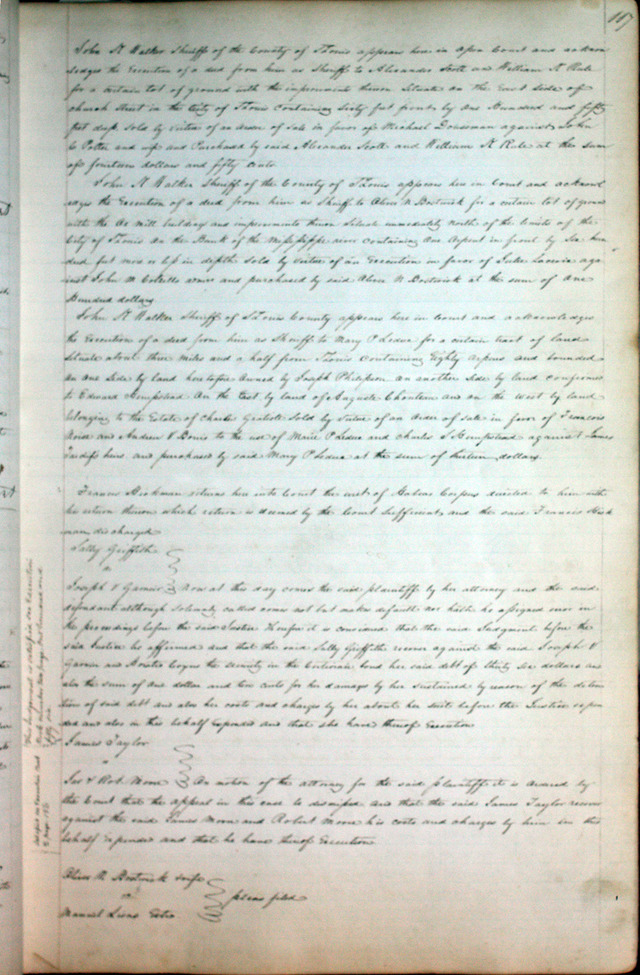 117
John K Walker Sheriff of the County of St Louis appears here in open Court and acknow
ledges the Execution of a deed from him as Sheriff to Alexander Scott and William K Rule
for a certain lot of ground with the improvements thereon Situate on the East side of
church Street in the City of St Louis containing Sixty feet front by One Hundred and fifty
feet deep. Sold by virtue of an order of sale in favor of Michael Dousman against John
C Potter and wife and Purchased by said Alexander Scott and William K Rule at the sum
of fourteen dollars and fifty cents
John K Walker Sheriff of the County of St Louis appears here in Court and acknowl
edges the Execution of a deed from him as Sheriff to Oliver N Bostwick for a certain lot of ground
with the Ox Mill building and improvements thereon Situate immediately north of the limits of the
City of St Louis on the Bank of the Mississippi river containing One Arpent in front by Six hun
dred feet more or less in depth Sold by virtue of an Execution in favor of Jules
against John and purchased by said Oliver N Bostwick at the sum of One
Hundred dollars
John K Walker Sheriff of St Louis County appears here in Court and acknowledges
the Execution of a deed from him as Sheriff to Mary P Leduc for a certain tract of land
Situate about three miles and a half from St Louis Containing Eighty arpens and bounded
on one Side by land heretofore owned by Joseph Philipson on another Side by land confirmed
to Edward Hempstead On the East by land of Auguste Chouteau and on the west by land
belonging to the Estate of Charles Gratiot Sold by virtue of an order of sale in favor of Francois
and Andrew to the use of Marie P Leduc and Charles S Hempstead against James
heirs and purchased by said Mary P Leduc at the sum of thirteen dollars.
Francis Hickman returns here into Court the writ of Habeas Corpus directed to him with
his return thereon which return is deemed by the Court Sufficient and the said Francis Hick
man discharged
Sally Griffith
vs
Joseph V Garnier Now at this day comes the said plaintiff by her attorney and the said
defendant although Solemnly called comes not but makes default nor hath he assigned error in
the proceedings before the said Justice Therefore it is considered that the said Judgment before the
said Justice be affirmed and that the said Sally Griffith recover against the said Joseph V
Garnier and the security in the bond her said debt of thirty six dollars and
also the sum of one dollar and two cents for her damages by her sustained by reason of the deten
tion of said debt and also her costs and charges by her about her suit before the Justice expen
ded and also in this behalf Expended and that she have thereof Execution
James Taylor
vs
Jas & Rob. Moore On motion of the attorney for the said plaintiff it is ordered by
the Court that the appeal in this case be dismissed and that the said James Taylor recover
against the said James Moore and Robert Moore his costs and charges by him in this
behalf Expended and that he have thereof Execution
Oliver N Bostwick
vs pleas filed
Manuel Lisas Extrs